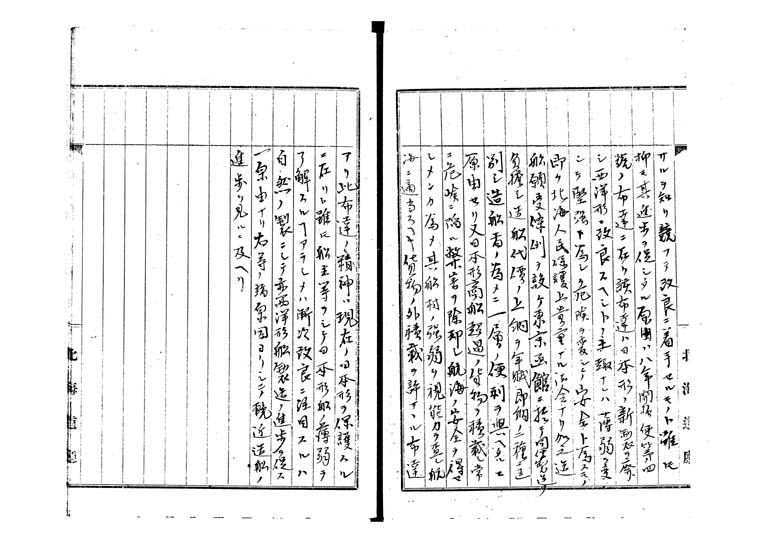 サルヲ知リ競フテ改良ニ着手セルモノト雖モ
抑モ其進歩ヲ促シタル原因ハ八年開拓使第四
号ノ布達ニ在リ該布達ハ日本形ノ新製ヲ廃
シ西洋形ニ改良スヘシトノ主趣ナレハ薄弱ヲ変
シテ堅強ト為シ危険ヲ変シテ安全ト為スモノ
即チ北海人民保護上貴重ナル法令ナリ加之造
船願受条例ヲ設ケ東京函館ニ於テ
負擔シ造船代價ノ上納ヲ年賦即納ノ二種ニ区
別シ造船者ノ為メニ一層ノ便利ヲ與ヘシモ
原由セリ又日本形商船超過ノ貨物ヲ積載シ常
ニ危険ニ陥ル弊害ヲ除却シ航海ノ安全ヲ得セ
シメンカ為メ其船材ノ強弱ヲ視能力ヲ量シ航
海ニ適当スヘキ貨物ノ外積載ヲ許サヽル布達
アリ此布達ノ精神ハ現在ノ日本形ヲ保護スル
ニ在リト雖モ船主等ヲシテ日本形船ノ薄弱ヲ
了解スルヿアラシメハ漸次改良ニ注目スルハ
自然ノ製ニシテ亦西洋形船製造ノ進歩ヲ促ス
一原由ナリ右等ノ諸原因ヨリシテ輓近造船ノ
進歩ヲ見ルニ及ヘリ
北海道廳
北海道廳